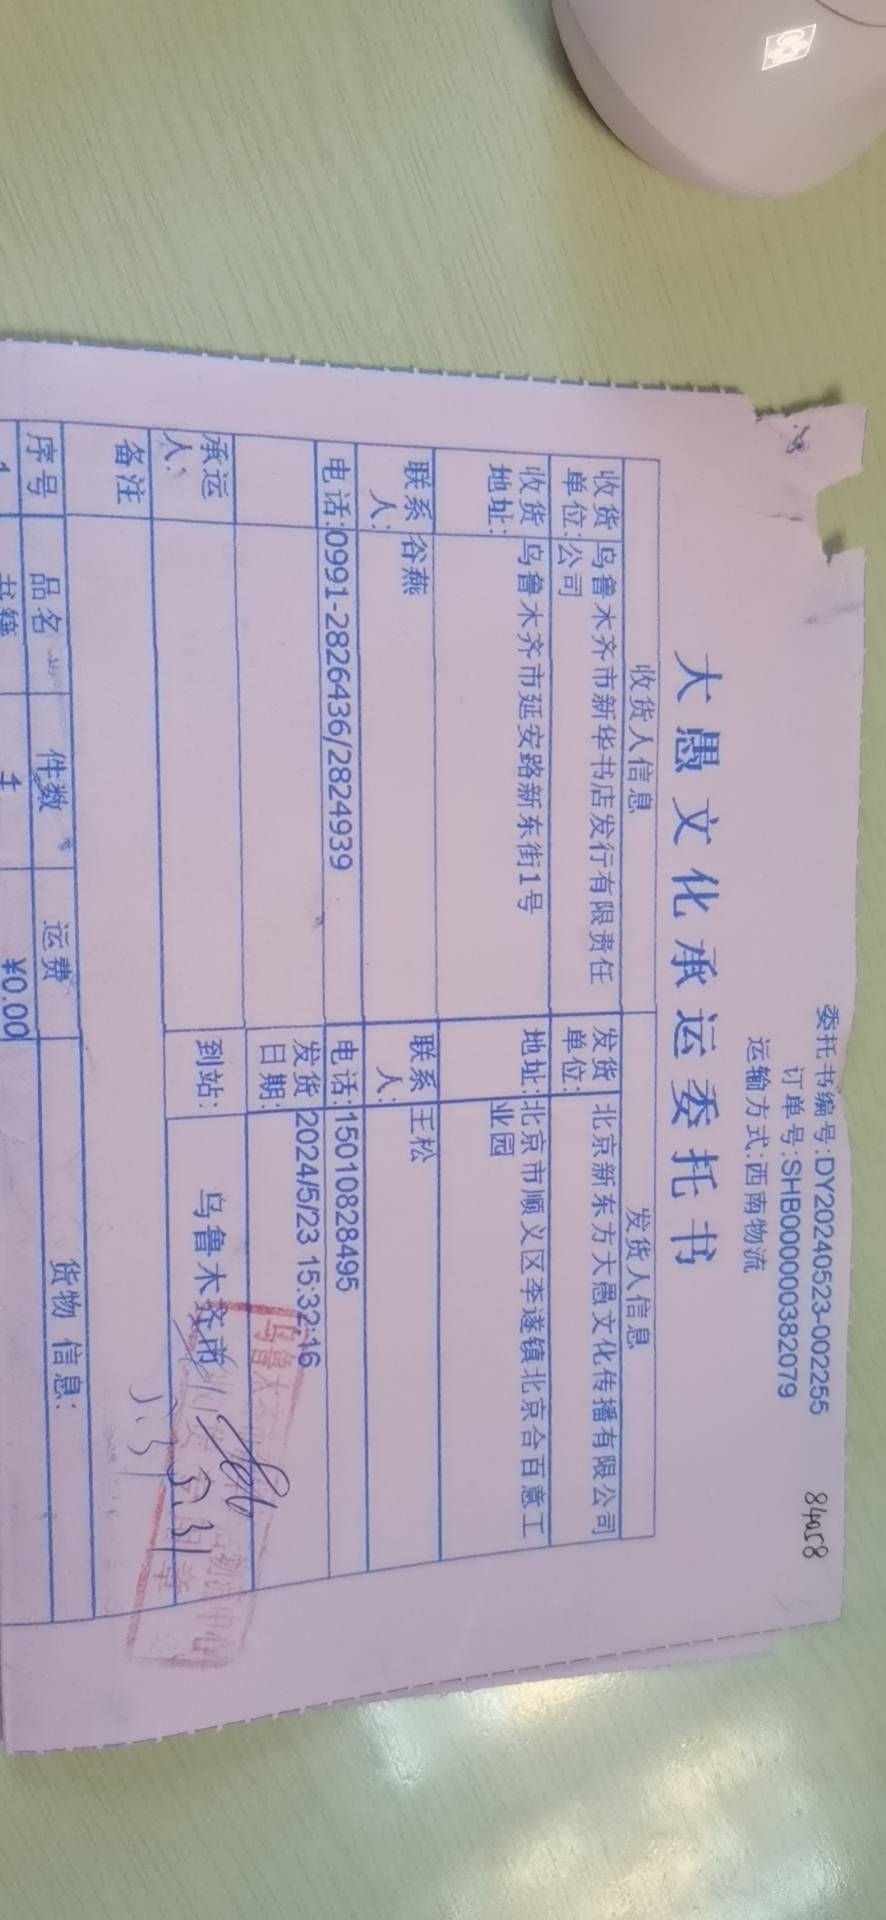 委托书编号:DY20240523-002255
84058
订单号:SHB000000382079
运输方式:西南物流
大愚文化承运委托书
收货人信息
发货人信息
收货单位:
乌鲁木齐市新华书店发行有限责任
公司
发货单位:
北京新东方大愚文化传播有限公司
收货地址:
乌鲁木齐市延安路新东街1号
地址:
北京市顺义区李遂镇北京合百意工
业园
联系人:
谷燕
联系人:
王松
电话:
0991-2826436/2824939
电话:
15010828495
发货日期:
2024/5/23 15:32:16
承运人:
到站:
乌鲁木齐市
5.31
备注
货物 信息:
序号
品名
件数
运费
1
书籍
¥0.00